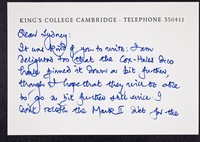 KING'S COLLEGE CAMBRIDGE - TELEPHONE 350411
Dear Sydney:
It was kind of you to write: I am
delighted too that the Cox-Hales Dico
have pinned it down a bit further,
though I hope that they will be able
to go a bit further still since I
don't the Mark II for the